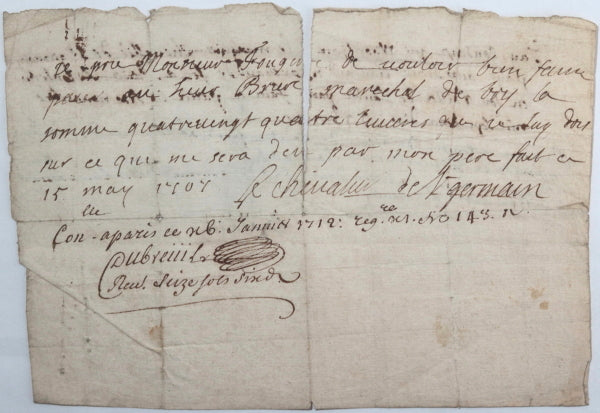 je prie Monsieur Fouger de vouloir bien faire
paier au sieur Brier marechal de boy la
somme quatrevingt quatre que je luy dois
sur ce que me sera deu par mon pere fait ce
15 may 1707 Le chevalier de St germain
Con aparis ce 26 Janvier 1712 reg.re No 143
Dubreuil
Receu seize sols six d